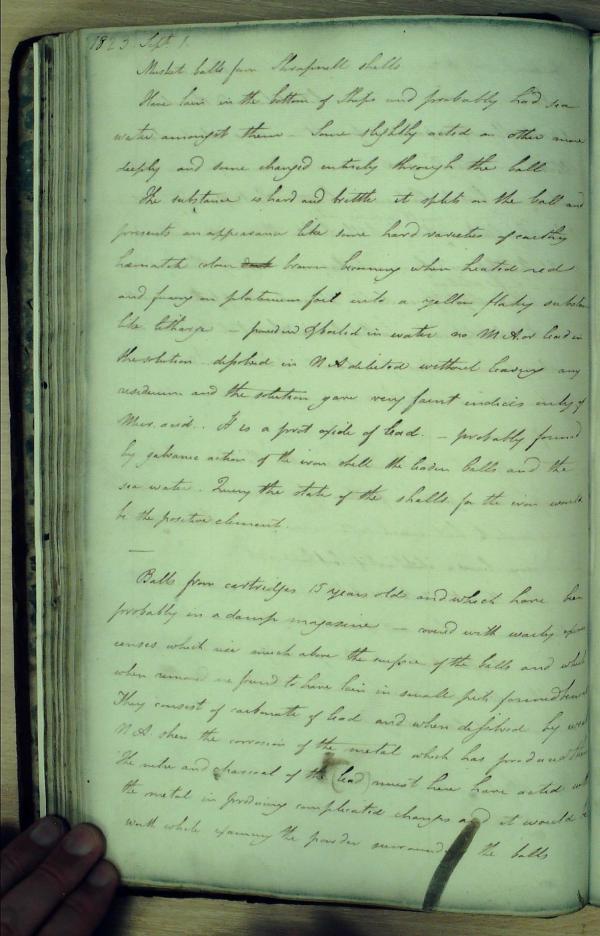 1823 Sept 1.
Musket balls from Shrapnell shells
Have lain in the bottom of Ships and probably had sea
water amongst them - Some slightly acted on other more
deeply and some changed entirely through the ball
The substance is hard and brittle it splits on the ball and
presents an appearance like some hard varieties of earthy
hematite colour dark brown becoming when heated red
and fusing on platinum foil into a yellow flaky substance
like litharge - powdered & boiled in water no M A or lead in
the solution dissolved in N A diluted without leaving any
residuum and the solution gave very faint indicies only of
Mur. acid. It is a prot oxide of lead. - probably formed
by galvanic action of the iron shell the leaden balls and the
sea water. Query the state of the shells for the iron would
be the positive element.
Balls from cartridges 15 years old and which have been
probably in a damp magazine - covered with warty excres
cences which rise much above the surface of the balls and which
when removed are found to have lain in small pits formed
They consist of carbonate of lead and when dissolved by
N A. shew the corrosion of the metal which has produced
The nitre and charcoal of the (lead) must here have acted
the metal in producing complicated changes and it would be
worth while examing the powder surrounding the balls